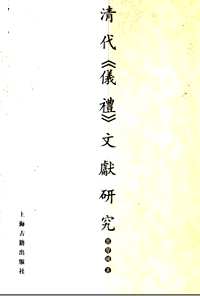 清代《儀禮》文獻研究
上海古籍出版社